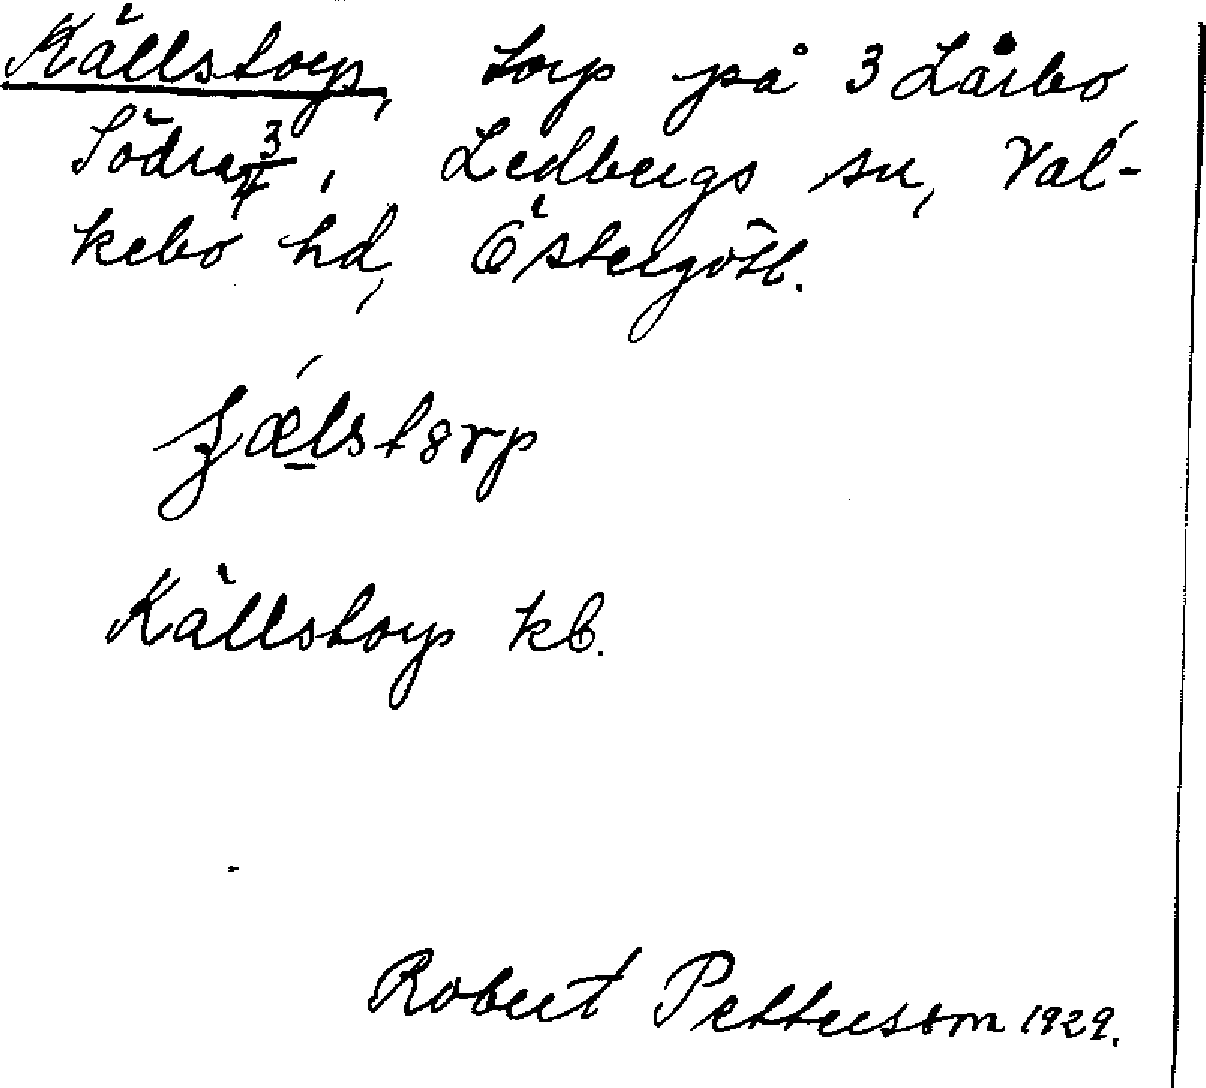 Källstorp, torp på 3 Lårbo
Södra 3/4, Ledbergs sn, Val-
kebo hd, Östergötl.
Källstorp kb.
Robert Pettersson 1929.